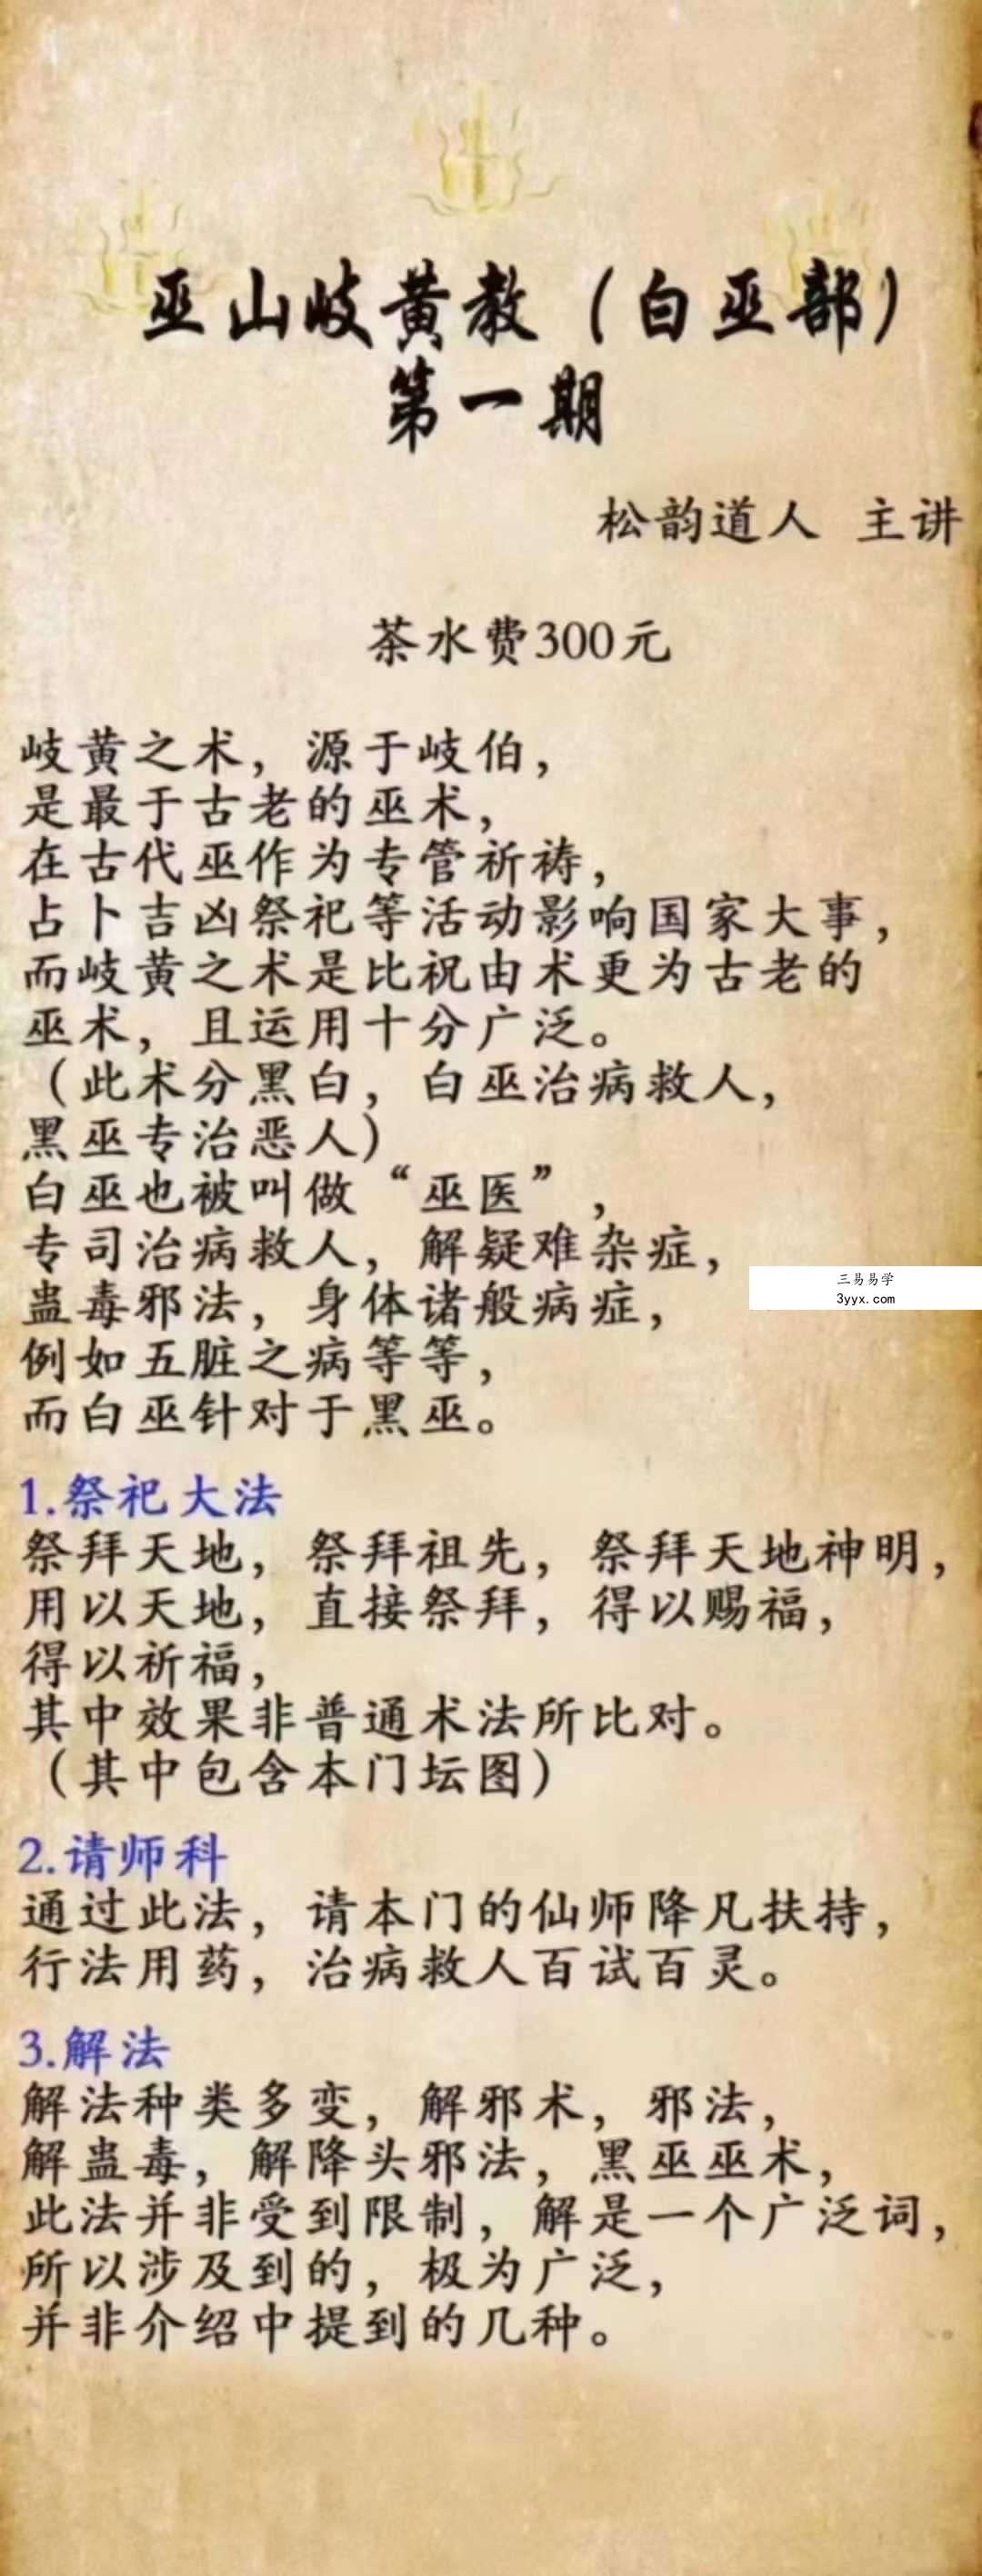 巫山岐黄教（白巫部）
第一期
松韵道人 主讲
茶水费300元
岐黄之术，源于岐伯，
是最于古老的巫术，
在古代巫作为专管祈祷，
占卜吉凶祭祀等活动影响国家大事，
而岐黄之术是比祝由术更为古老的
巫术，且运用十分广泛。
（此术分黑白，白巫治病救人，
黑巫专治恶人）
白巫也被叫做“巫医”，
专司治病救人，解疑难杂症，
蛊毒邪法，身体诸般病症，
例如五脏之病等等，
而白巫针对于黑巫。
三易易学
3yyx.com
1.祭祀大法
祭拜天地，祭拜祖先，祭拜天地神明，
用以天地，直接祭拜，得以赐福，
得以祈福，
其中效果非普通术法所比对。
（其中包含本门坛图）
2.请师科
通过此法，请本门的仙师降凡扶持，
行法用药，治病救人百试百灵。
3.解法
解法种类多变，解邪术，邪法，
解蛊毒，解降头邪法，黑巫巫术，
此法并非受到限制，解是一个广泛词，
所以涉及到的，极为广泛，
并非介绍中提到的几种。